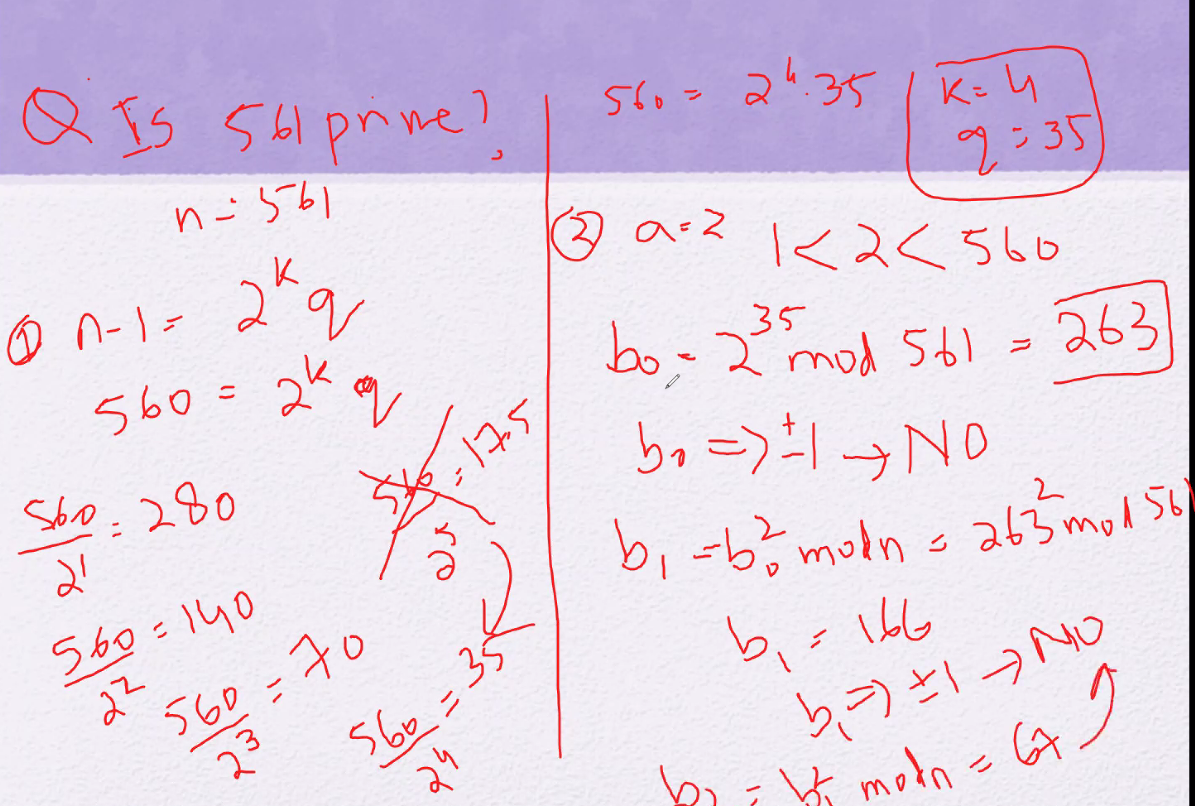 Q Is 561 prime?
n = 561
① n-1 = 2^k q
560 = 2^k q
560/2^1 = 280
560/2^2 = 140
560/2^3 = 70
560/2^4 = 35
560/2^5 = 17.5
560 = 2^4 . 35
k = 4
q = 35
② a = 2 1 < 2 < 560
b₀ = 2^35 mod 561 = 263
b₀ => ±1 → NO
b₁ = b₀² mod n = 263² mod 561
b₁ = 166
b₁ => ±1 → NO
b₂ = b₁² mod n = 67